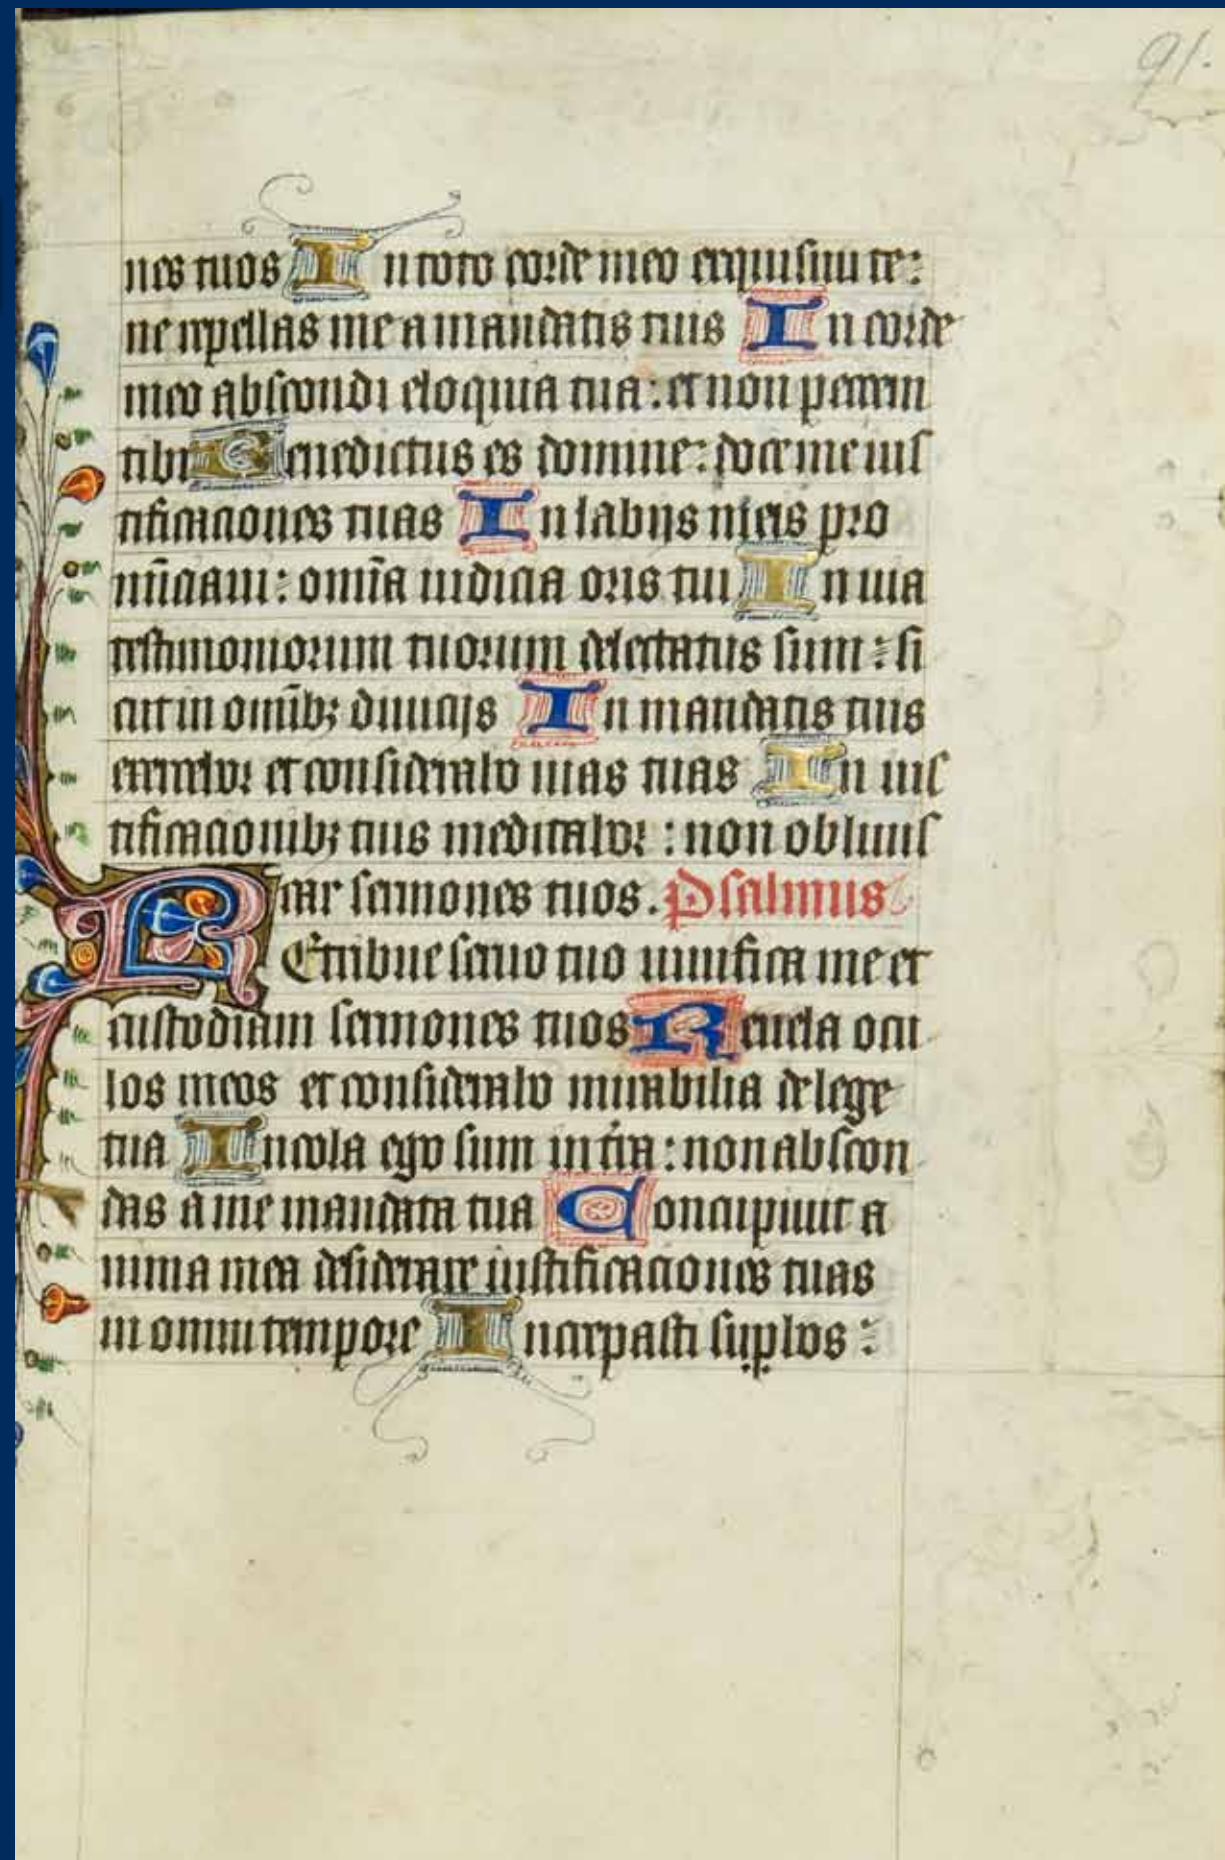 91.
nes tuos In toto corde meo exquisiui te:
ne repellas me a mandatis tuis In corde
meo abscondi eloquia tua: et non peccem
tibi Benedictus es domine: doce me ius
tificaciones tuas In labijs meis pro
nūciaui: omīa iudicia oris tui In uia
testimoniorum tuorum delectatus sum: si
cut in omībꝫ diuicijs In mandatis tuis
exercebor et considerabo uias tuas In ius
tificacionibꝫ tuis meditabor: non obliuis
car sermones tuos. Psalmus
REtribue seruo tuo uiuifica me et
custodiam sermones tuos Reuela ocu
los meos et considerabo mirabilia de lege
tua Incola ego sum in t̄ra: non abscon
das a me mandata tua Concupiuit a
nima mea desiderare iustificaciones tuas
in omni tempore Increpasti suꝑbos: